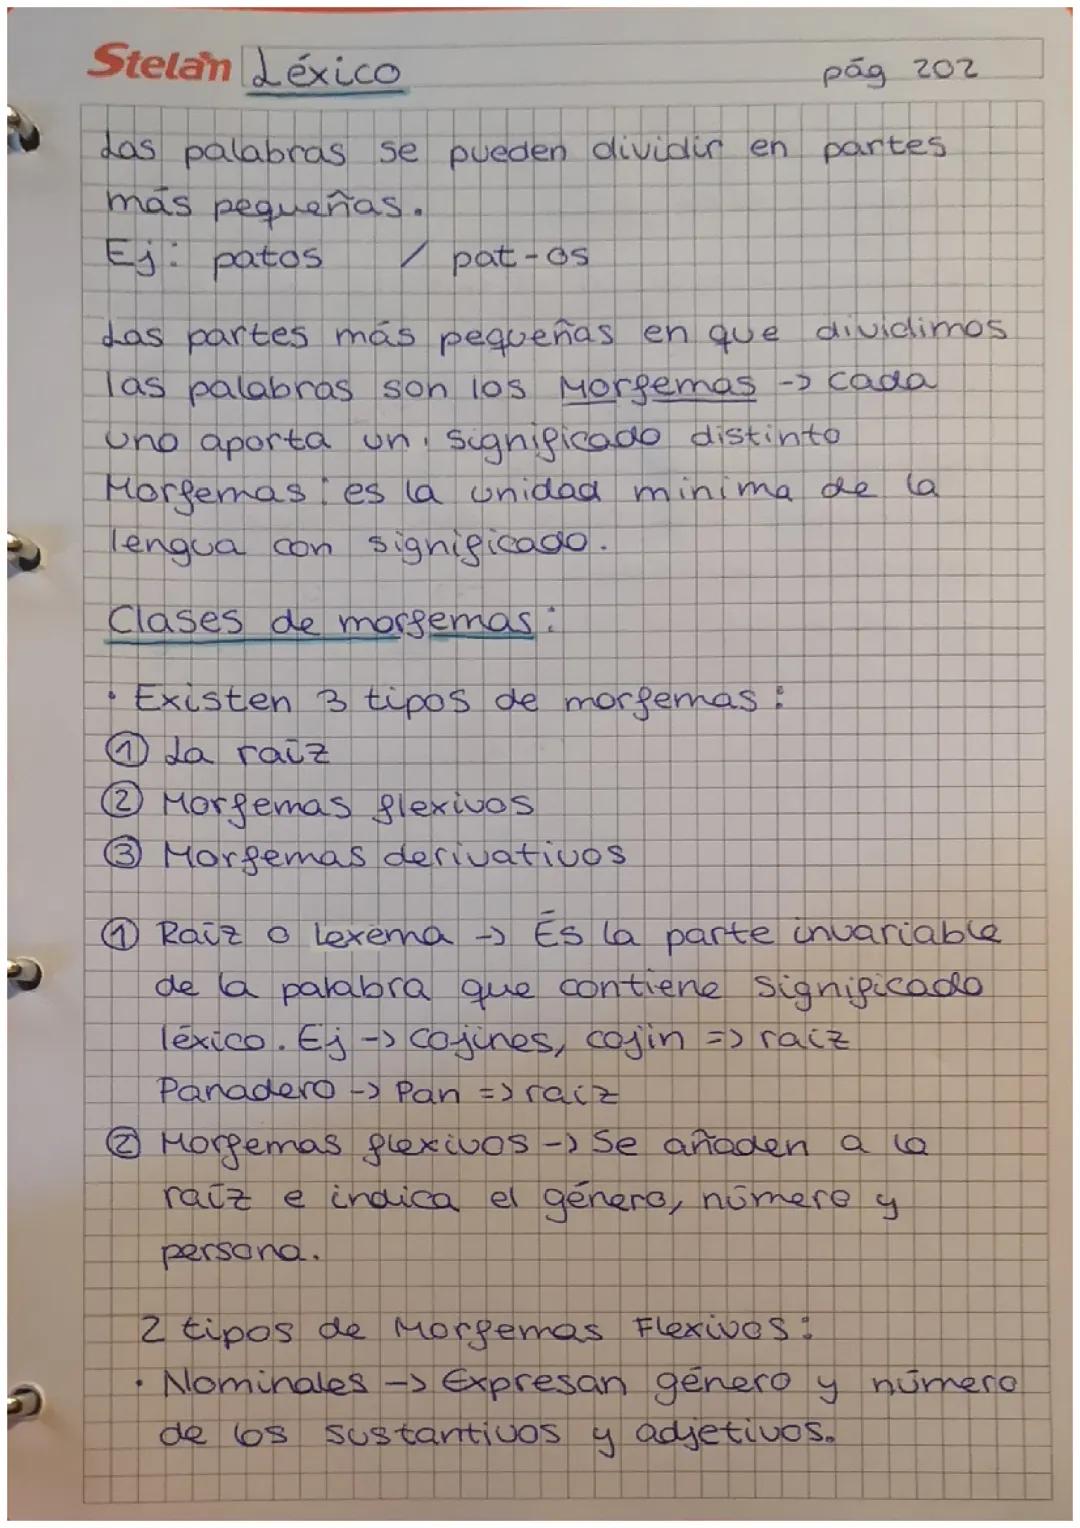 Stelan Léxico pág 202
Las palabras se pueden dividir en partes
más pequeñas.
Ej: patos / pat-os
Las partes más pequeñas en que dividimos
las palabras son los Morfemas -> cada
uno aporta un significado distinto
Morfemas: es la unidad mínima de la
lengua con significado.
Clases de morfemas:
· Existen 3 tipos de morfemas:
① La raíz
② Morfemas flexivos
③ Morfemas derivativos
① Raíz o lexema -> És la parte invariable
de la palabra que contiene significado
léxico. Ej -> Cojines, cojin => raíz
Panadero -> Pan => raíz
② Morfemas flexivos -> Se añaden a la
raíz e indica el género, número y
persona.
2 tipos de Morfemas Flexivos:
· Nominales -> Expresan género y número
de los sustantivos y adjetivos.